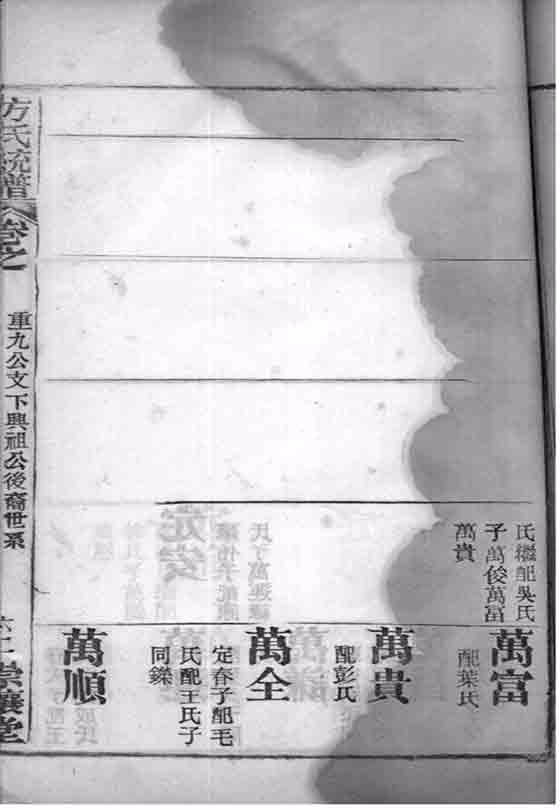 氏繼配吳氏
子萬俊萬富
萬貴
萬富
配葉氏
萬貴
配彭氏
萬全
定春子配毛
氏配王氏子
同鑠
萬順
方氏統譜
卷之
重九公文下興祖公後裔世系
堂